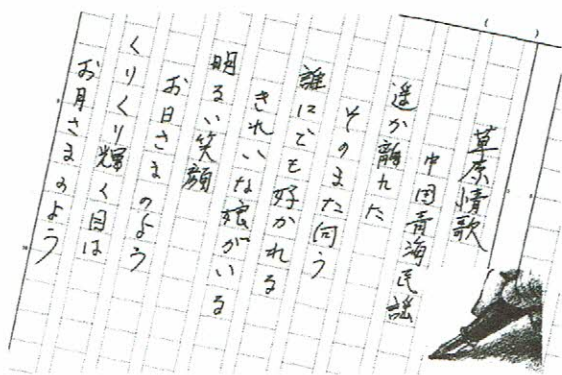 草原情歌
中国青海民謡
遥か離れた
そのまた向う
誰にでも好かれる
きれいな娘がいる
明るい笑顔
お日さまのよう
くりくり輝く目は
お月さまのよう